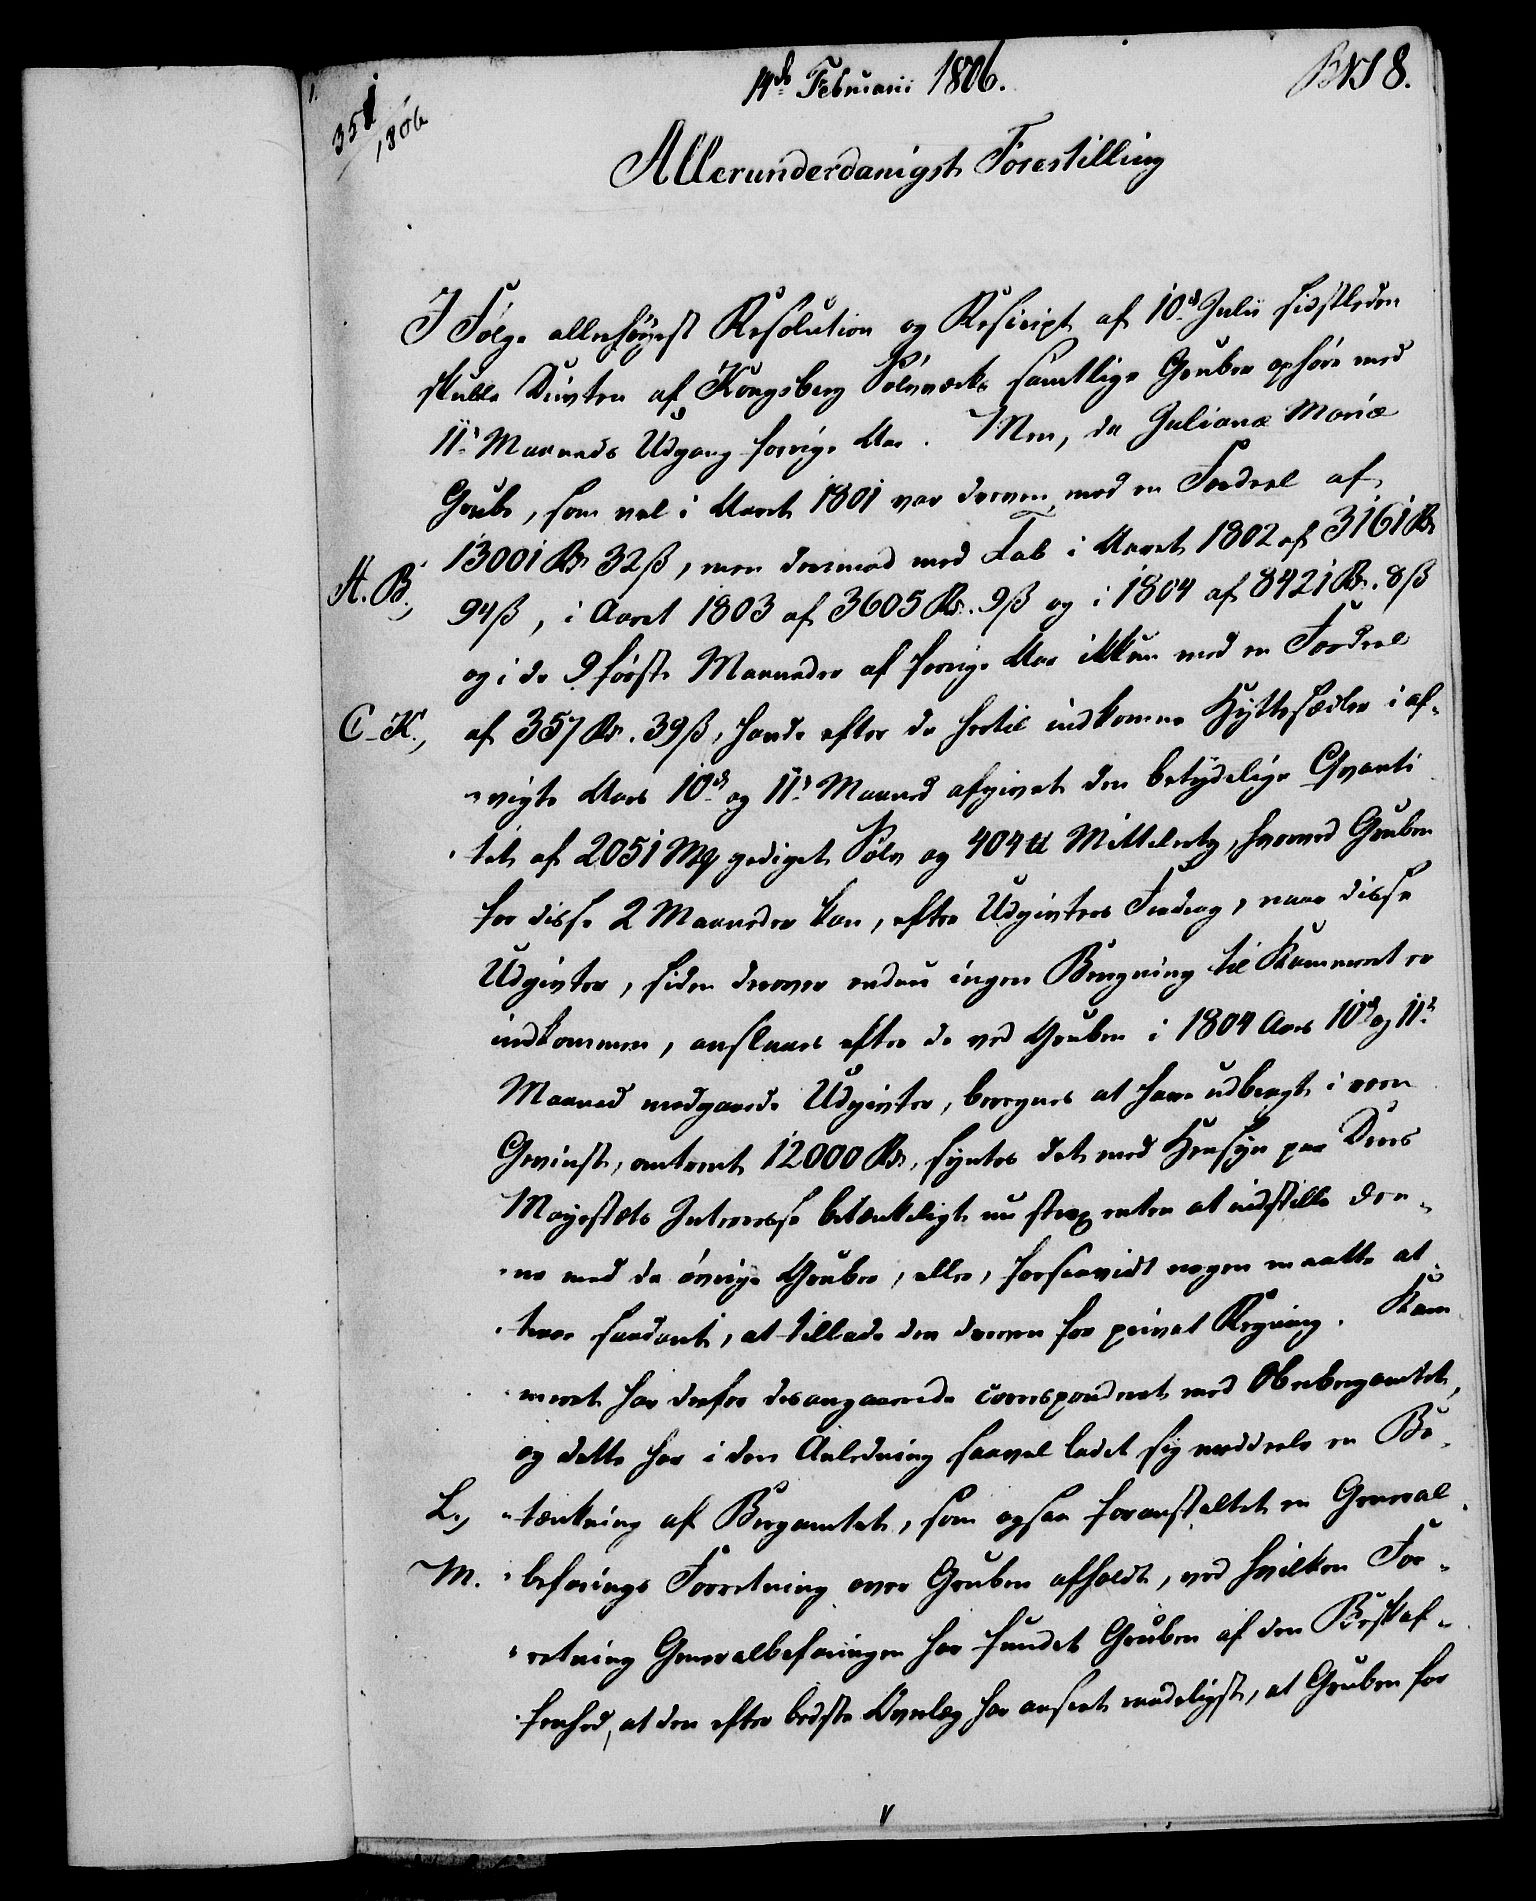 14de Februarii 1806.
BNS 8.
351
1806
Allerunderdanigst Forestilling
I Følge allerhøyest Resolution og Rescript af 10de Julii sidstleden
skulle Driften af Kongsberg Sølvværks samtlige Gruber ophøre med
11te Maaneds Udgang forrige Aar. Men, da Juliane Mariæ
Grube, som vel i Aaret 1801 var dreven med en Fordeel af
13001 Rd 32ß, men derimod med Tab i Aaret 1802 af 3161 Rd
A. B.,
94ß, i Aaret 1803 af 3605 Rd. 9ß og i 1804 af 8421 Rd. 8ß
og i de 9 første Maaneder af forrige Aar ikkun med en Fordeel
C-K.,
af 357 Rd. 39ß, havde efter de hertil indkomne Hyttesedler i af-
-vigte Aars 10de og 11te Maaned afgivet den betydelige Qvanti
-tet af 2051 Mk gediget Sølv og 404 ℔ Mittelertz, hvorved Gruben
for disse 2 Maaneder kan, efter Udgivters Fradrag, naar disse
Udgivter, siden derover endnu ingen Beregning til Kammeret er
indkommen, anslaaes efter de ved Gruben i 1804 Aars 10de og 11te
Maaned medgaaede Udgivter, beregnes at have udbragt i reen
Gevinst, omtrent 12000 Rd, syntes det med Hensyn paa Deres
Majestæts Interesse betænkeligt nu strax enten at indstille den-
-ne med de øvrige Gruber, eller, forsaavidt nogen maatte at-
-traae saadant, at tillade den dreven for privat Regning. Kam
-meret har derfor desangaaende corresponderet med Oberbergamtet,
og dette har i den Anledning saavel ladet sig meddele en Be-
L.,
-tænkning af Bergamtet, som ogsaa foranstaltet en General-
M.
-befarings Forretning over Gruben afholdt, ved hvilken For-
-retning Generalbefaringen har fundet Gruben af den Beskaf-
-fenhed, at den efter bedste Overlæg har anseet raadeligst, at Gruben for